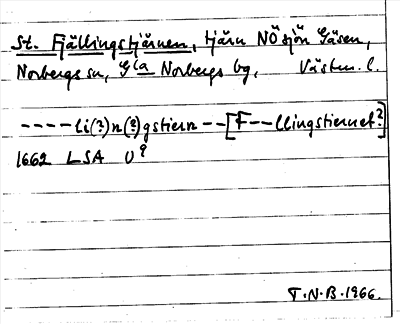 St. Fjällingstjärnen, tjärn NÖ sjön Gäsen,
Norbergs sn, Gla Norbergs bg, Västm. l.
----li(?)n(?)gstiern--[F--llingstiernet?]
1662 LSA U9
T.N.B. 1966.